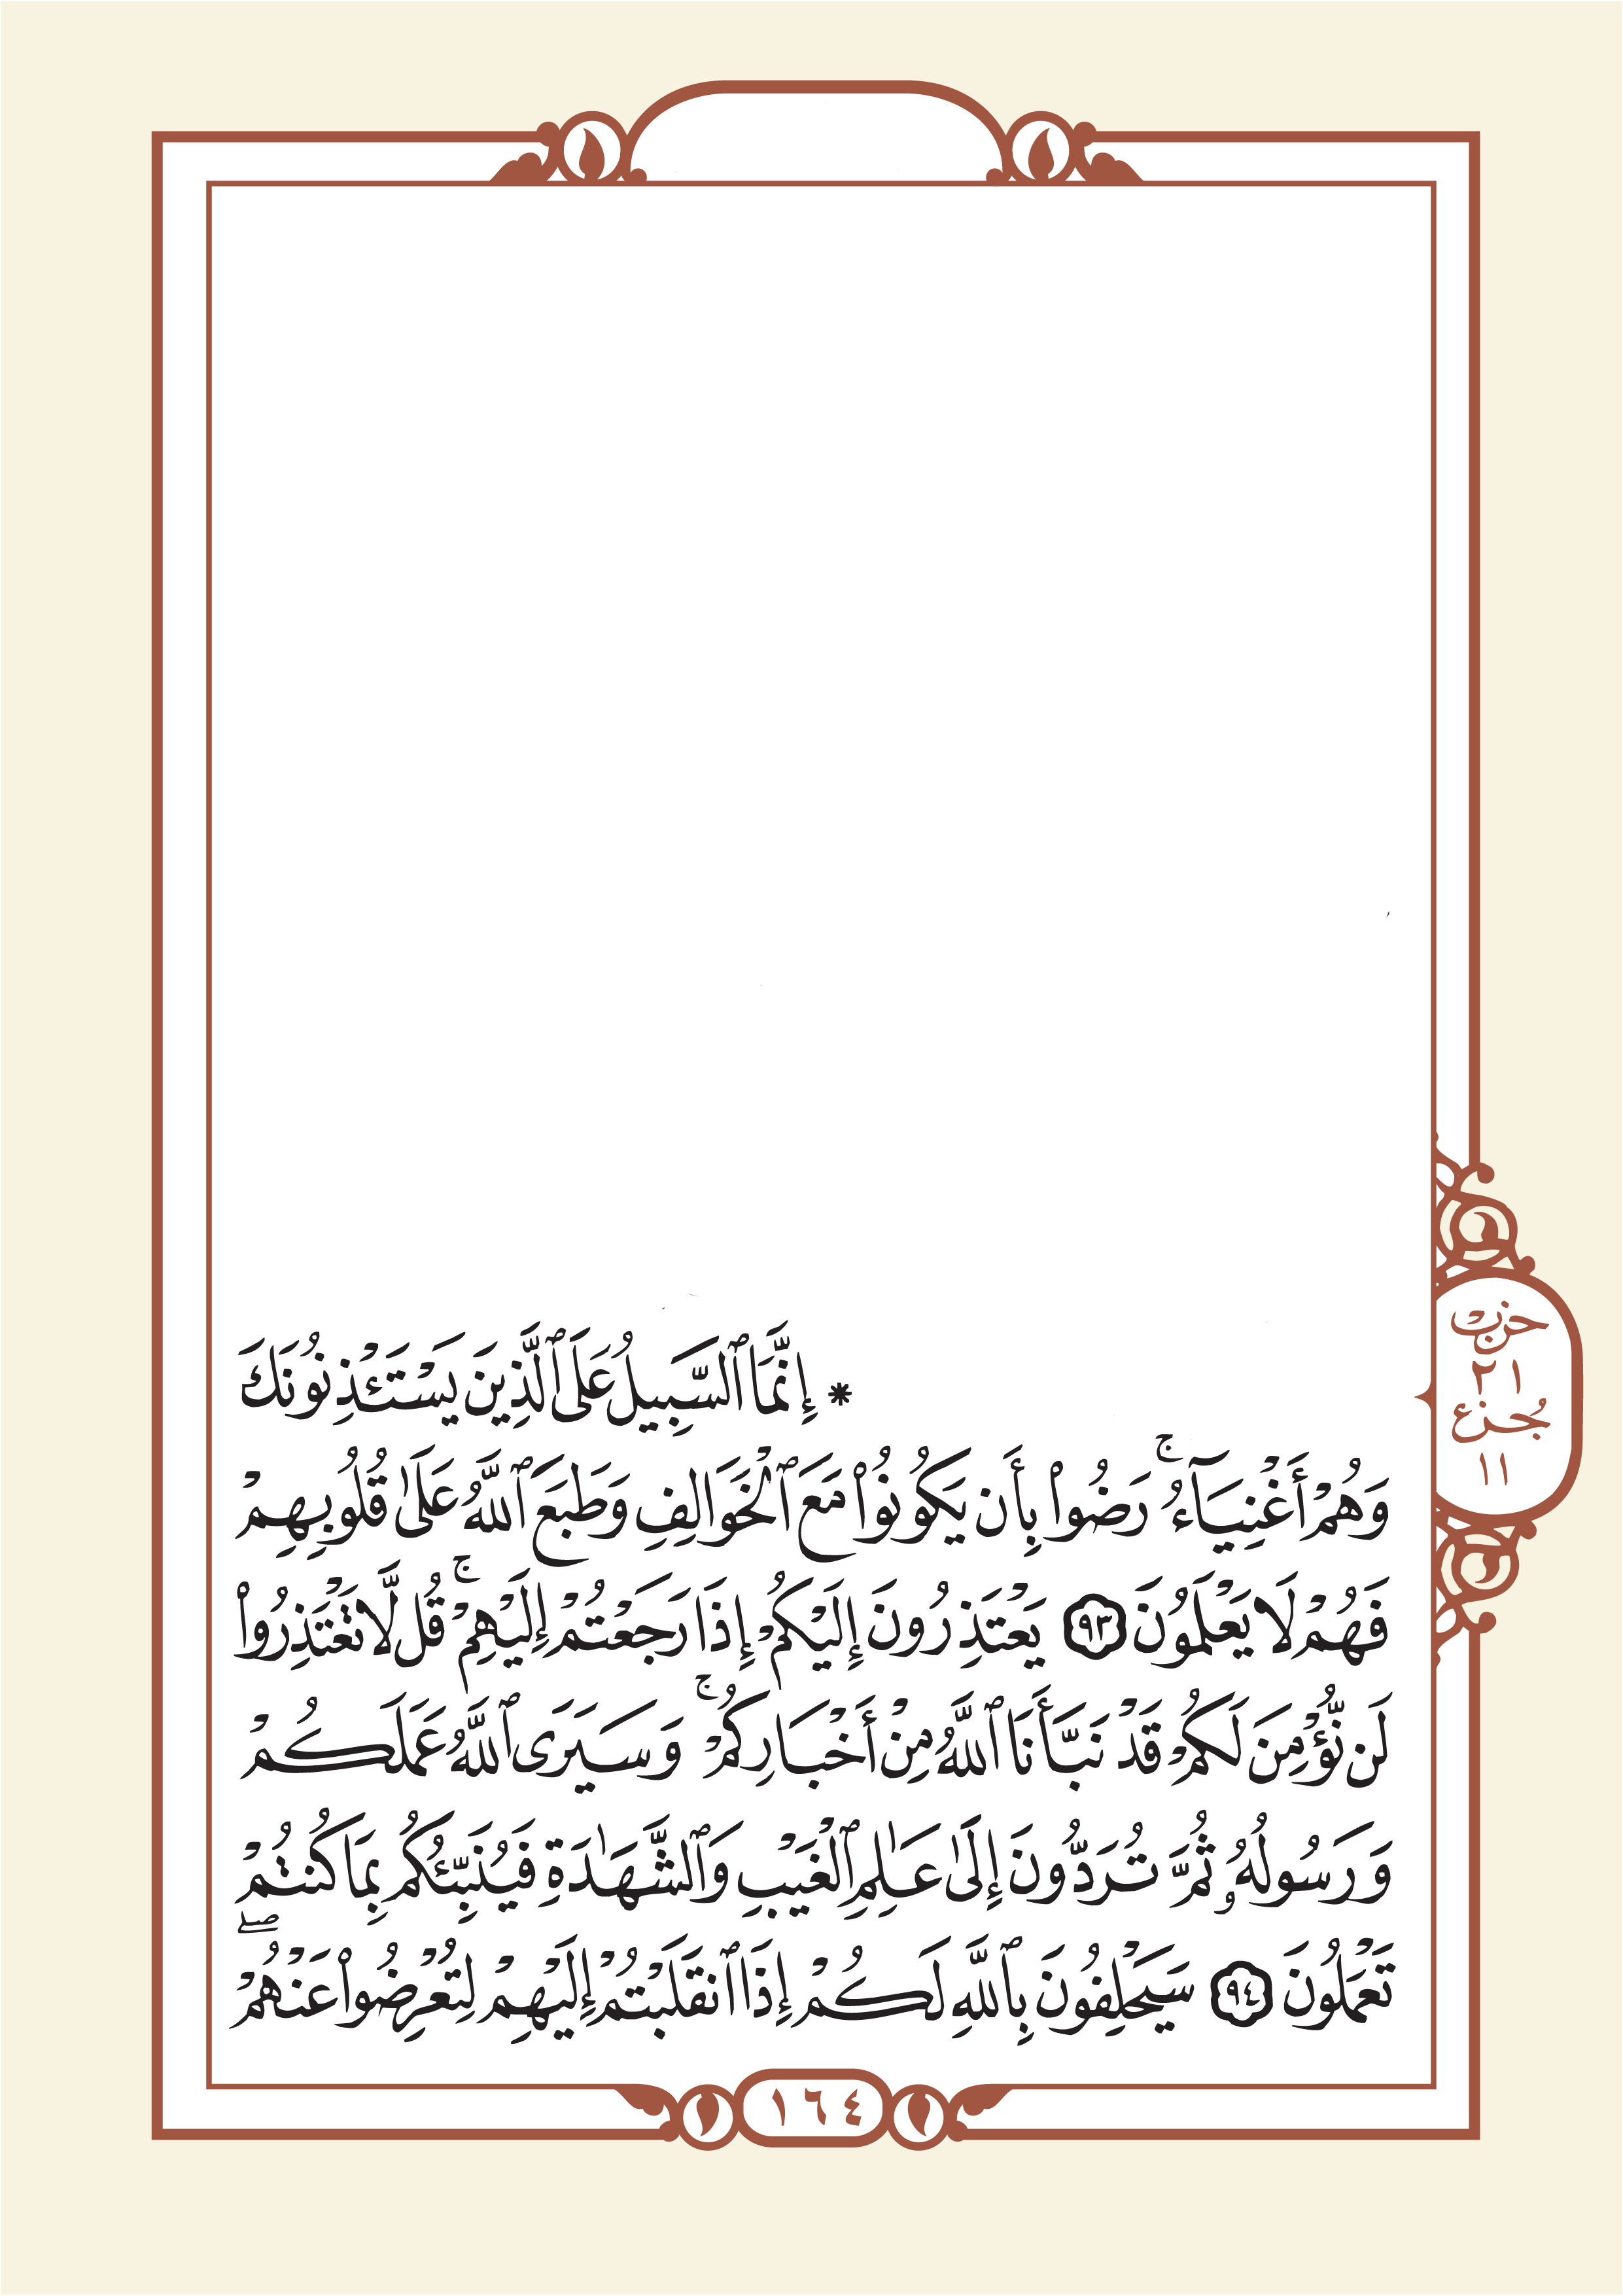 * إِنَّمَا ٱلسَّبِيلُ عَلَى ٱلَّذِينَ يَسْتَـْٔذِنُونَكَ
وَهُمْ أَغْنِيَآءُ ۚ رَضُوا۟ بِأَن يَكُونُوا۟ مَعَ ٱلْخَوَالِفِ وَطَبَعَ ٱللَّهُ عَلَىٰ قُلُوبِهِمْ
فَهُمْ لَا يَعْلَمُونَ ٩٣ يَعْتَذِرُونَ إِلَيْكُمْ إِذَا رَجَعْتُمْ إِلَيْهِمْ ۚ قُل لَّا تَعْتَذِرُوا۟
لَن نُّؤْمِنَ لَكُمْ قَدْ نَبَّأَنَا ٱللَّهُ مِنْ أَخْبَارِكُمْ ۚ وَسَيَرَى ٱللَّهُ عَمَلَكُمْ
وَرَسُولُهُۥ ثُمَّ تُرَدُّونَ إِلَىٰ عَـٰلِمِ ٱلْغَيْبِ وَٱلشَّهَـٰدَةِ فَيُنَبِّئُكُم بِمَا كُنتُمْ
تَعْمَلُونَ ٩٤ سَيَحْلِفُونَ بِٱللَّهِ لَكُمْ إِذَا ٱنقَلَبْتُمْ إِلَيْهِمْ لِتُعْرِضُوا۟ عَنْهُمْ ۖ
حزب
٢١
جُزء
١١
١٦٤